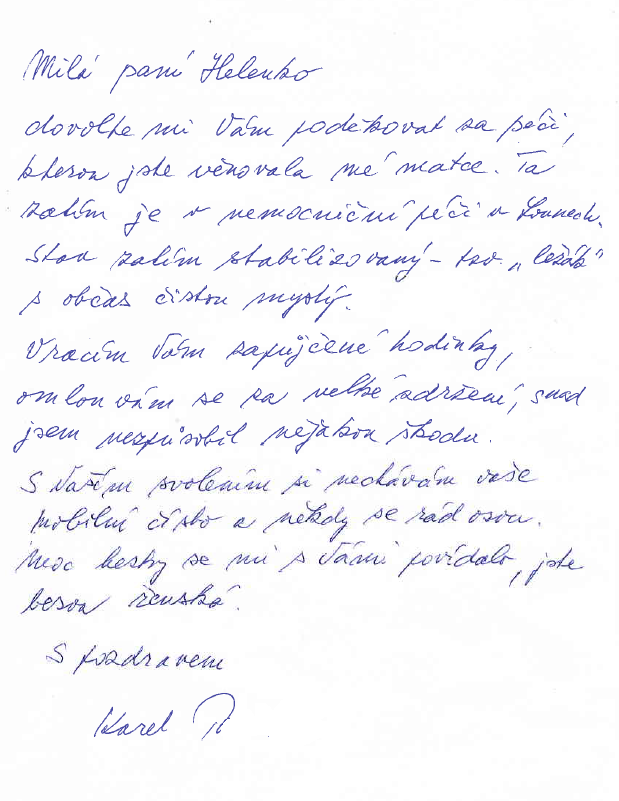 Milá paní Helenko
dovolte mi Vám poděkovat za péči,
kterou jste věnovala mé matce. Ta
zatím je v nemocniční péči v Lounech.
Stav zatím stabilizovaný - tzv. „ležák"
s občas čistou myslí.
Vracím Vám zapůjčené hodinky,
omlouvám se za velké zdržení, snad
jsem nezpůsobil nějakou škodu.
S Vaším svolením si nechávám vaše
mobilní číslo a někdy se rád ozvu.
Moc hezky se mi s Vámi povídalo, jste
ženská.
S pozdravem
Karel